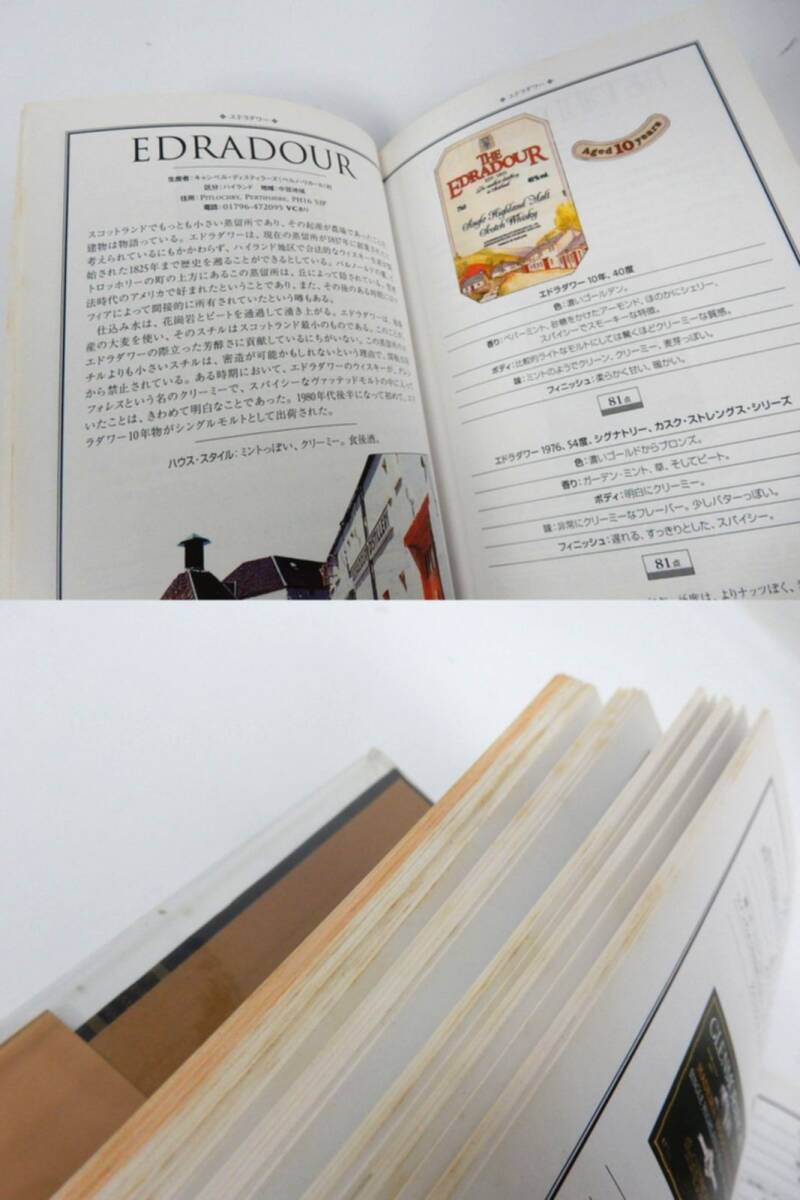 ◆ エドラダワー ◆
EDRADOUR
生産者：キャンベル・ディスティラーズ（ペルノ・リカール）社
区分：ハイランド 地域：中部地域
住所：PITLOCHRY, PERTHSHIRE, PH16 5JP
電話：01796-472095 VCあり
スコットランドでもっとも小さい蒸留所であり、その起源が農場であったことを
建物は物語っている。エドラダワーは、現在の蒸留所が1837年に創業されたと
考えられているにもかかわらず、ハイランド地区で合法的なウィスキー
始された1825年まで歴史を遡ることができるとしている。バルモールの
トロッホリーの町の上方にあるこの蒸留所は、丘によって隠されている。
法時代のアメリカで好まれたということであり、また、その後のある時期には
フィアによって間接的に所有されていたという噂もある。
仕込み水は、花崗岩とピートを通過して湧き上がる。エドラダワーは、
産の大麦を使い、そのスチルはスコットランド最小のものである。このことが、
エドラダワーの際立った芳醇さに貢献しているにちがいない。この蒸留所のス
チルよりも小さいスチルは、密造が可能かもしれないという理由で、
から禁止されている。ある時期において、エドラダワーのウィスキーが、グレン
フォレスという名のクリーミーで、スパイシーなヴァッテッドモルトの中に入って
いたことは、きわめて明白なことであった。1980年代後半になって初めて、エド
ラダワー10年物がシングルモルトとして出荷された。
ハウス・スタイル：ミントっぽい、クリーミー。食後酒。
DISTILLERY
◆ エドラダワー ◆
THE
EDRADOUR
Single Highland Malt
Scotch Whisky
Aged 10 years
エドラダワー 10年、40度
色：濃いゴールデン。
香り：ペパーミント、砂糖をかけたアーモンド、ほのかにシェリー、
スパイシーでスモーキーな特徴。
ボディ：比較的ライトなモルトにしては驚くほどクリーミーな質感。
味：ミントのようでクリーン、クリーミー、麦芽っぽい。
フィニッシュ：柔らかく甘い、暖かい。
81点
エドラダワー 1976、54度、シグナトリー、カスク・ストレングス・シリーズ
色：濃いゴールドからブロンズ。
香り：ガーデン・ミント、草、そしてピート。
ボディ：明白にクリーミー。
味：非常にクリーミーなフレーバー。少しバターっぽい。
フィニッシュ：遅れる、すっきりとした、スパイシー。
81点
は、よりナッツぽく、